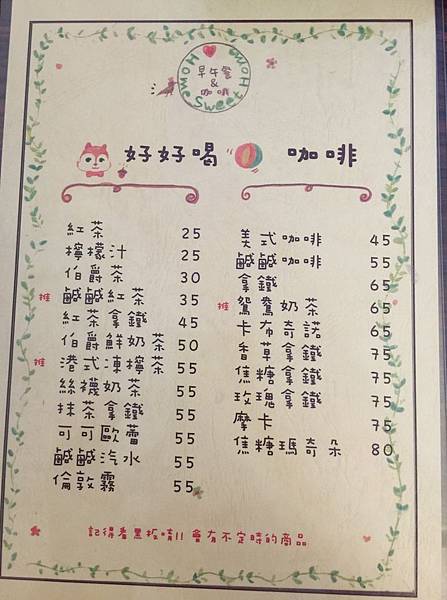 Home Sweet Home
早午餐
&
咖啡
好好喝 咖啡
紅茶 25
檸檬汁 25
伯爵茶 30
推 鹹鹹紅茶 35
紅茶拿鐵 45
伯爵鮮奶茶 50
推 港式凍檸茶 55
絲襪奶茶 55
抹茶拿鐵 55
可可歐蕾 55
鹹鹹汽水 55
倫敦霧 55
美式咖啡 45
鹹鹹咖啡 55
拿鐵 65
推 鴛鴦奶茶 65
卡布奇諾 65
香草拿鐵 75
焦糖拿鐵 75
玫瑰拿鐵 75
摩卡 75
焦糖瑪奇朵 80
記得看黑板唷!! 會有不定時的商品